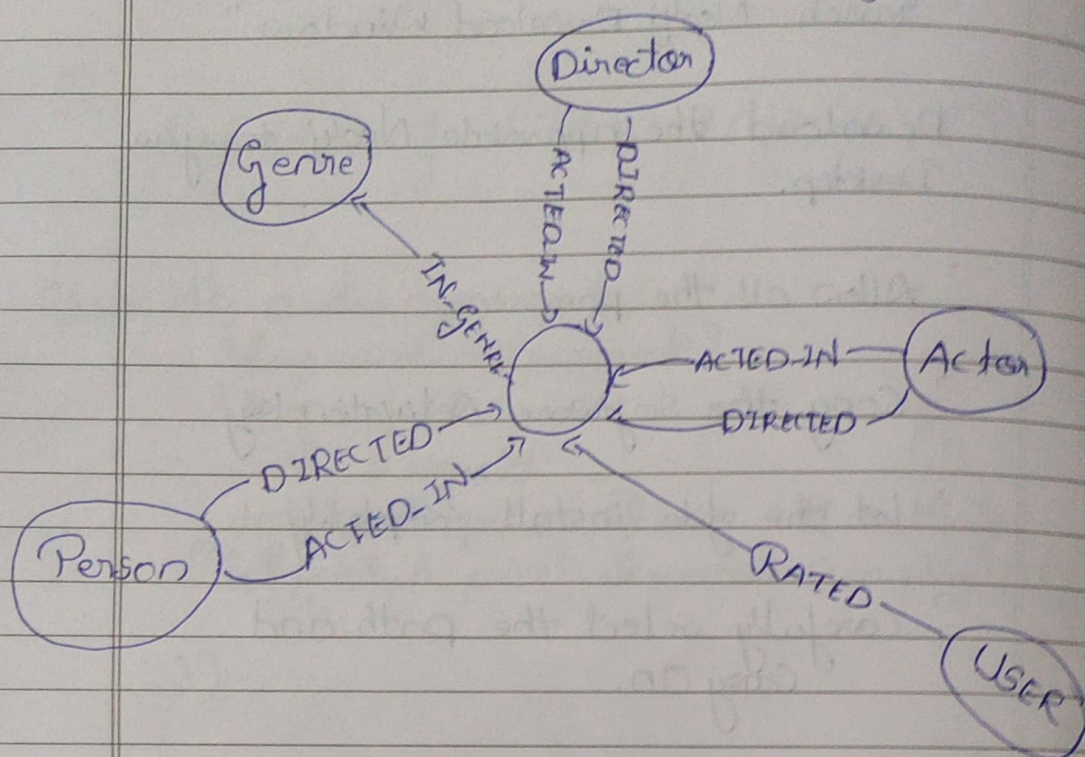 Director
Genre
ACTED_IN
DIRECTED
IN_GENRE
ACTED_IN
Actor
DIRECTED
DIRECTED
ACTED_IN
Person
RATED
USER